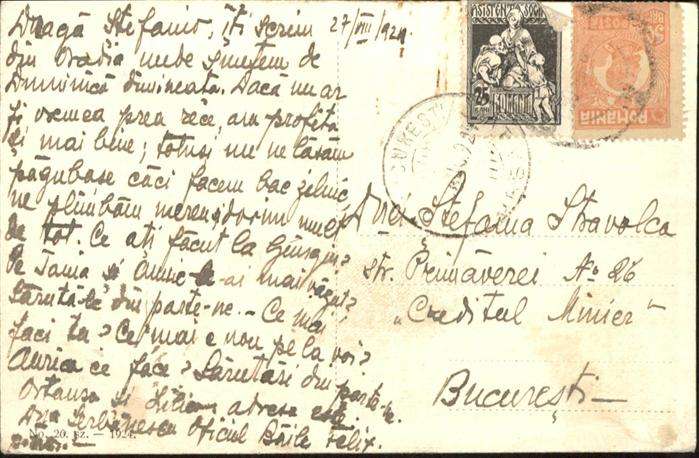 Dragă Stefanio, îți scrim 27/VIII/924
din Oradia unde suntem de
Duminică dimineata. Dacă n'ar
fi vremea prea rêce, am profita
și mai bine; totusi nu ne lăsăm
păgubase căci facem bac zelnic,
ne plimbăm mereu, dorim mult
de tot. Ce ati făcut la
Pe Tania si Anne le-ai mai văzut?
Sărută-le din parte-ne. - Ce mai
faci tu? Ce mai e nou pe la voi?
Aurica ce face? Sărutări din parte-ne.
Ortansa si adresa este.
D-ra Serbănescu Oficiul Băile Felix.
No. 20. sz. — 1924.
ASISTENȚA SOCIALĂ
25
BANI
ROMANIA
POSTA
50
BANI
BUKEȘTI
D-rei Ștefania Stravolca
str. Primăverei No 26
„Creditul Minier"
București —